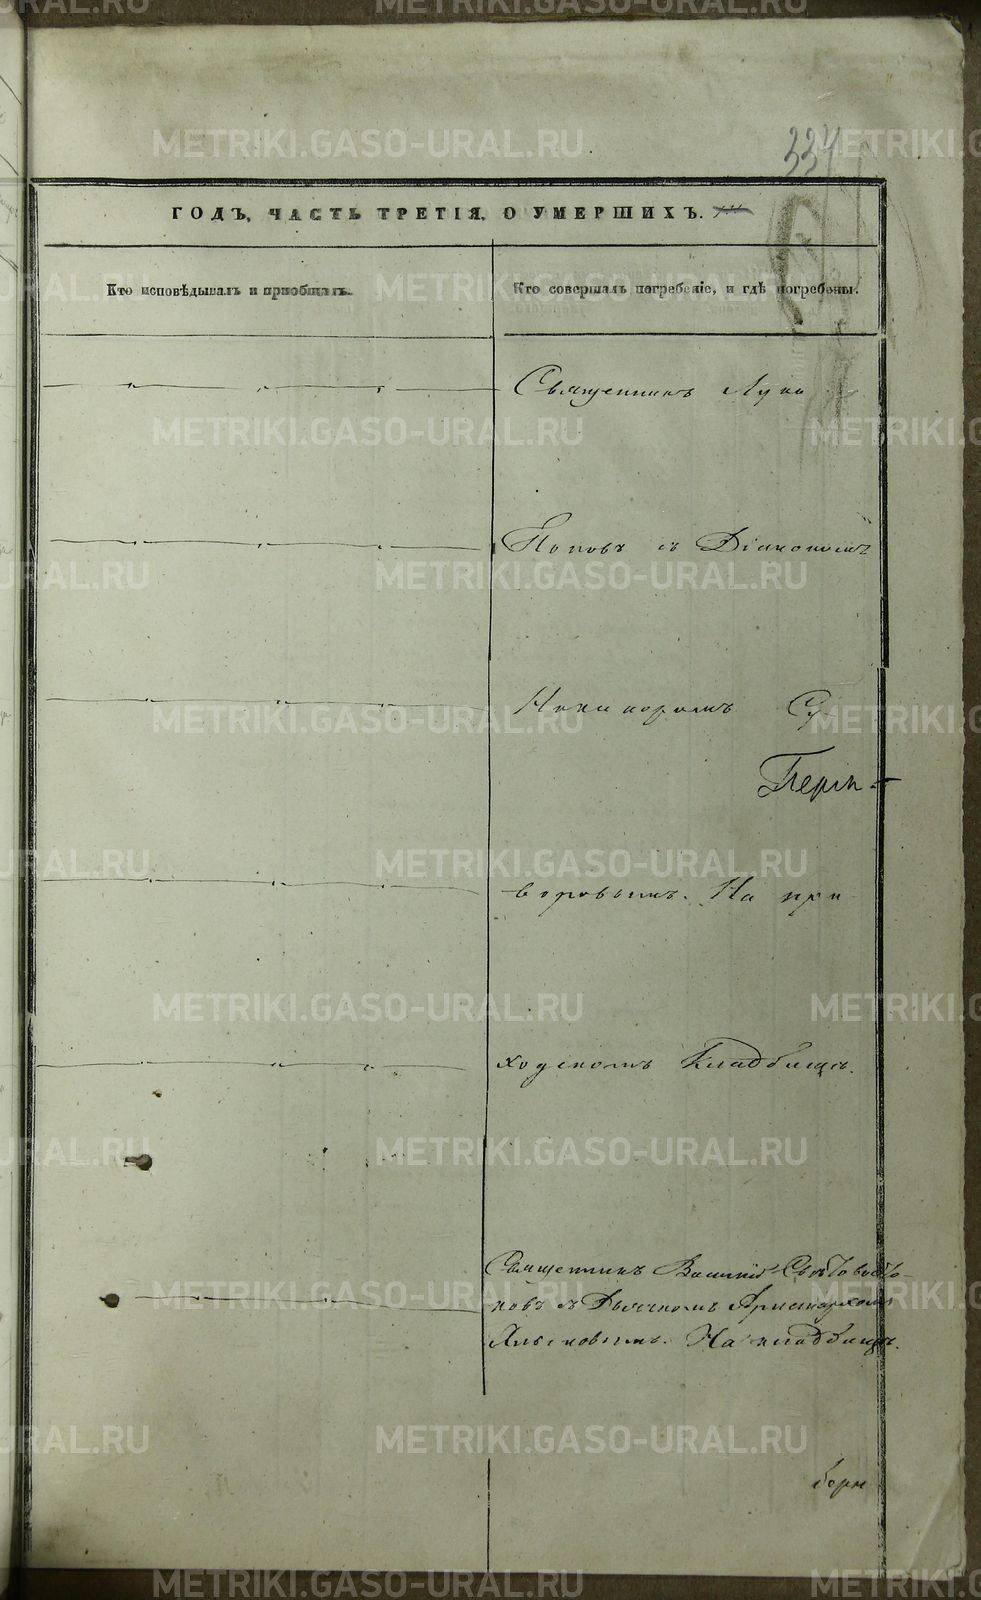 METRIKI.GASO-URAL.RU
334
ГОДЪ, ЧАСТЬ ТРЕТІЯ, О УМЕРШИХЪ.
Кто исповѣдывалъ и пріобщалъ.
Кто совершалъ погребеніе, и гдѣ погребены.
Священникъ Лука
Поповъ съ Діакономъ
Никаноромъ Су
воровымъ. На при
ходскомъ Кладбищѣ.
Священникъ Василій
новъ съ Дьячкомъ Аристархомъ
На кладбищѣ.